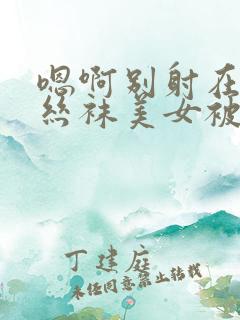 嗯啊别射在
丝袜美女被
丁建庭
未经同意禁止转载